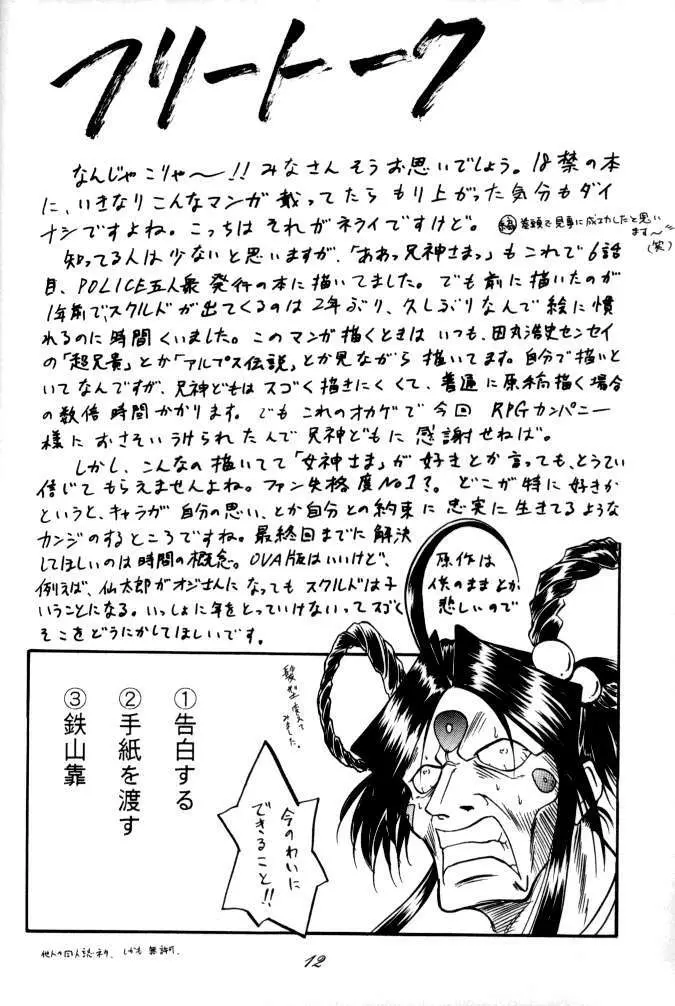 フリートーク
なんじゃこりゃ〜!! みなさん そうお思いでしょう。18禁の本
に、いきなりこんなマンガ載ってたら もり上がった気分もダイ
ナシですよね。こっちは それがネライですけど。 編 巻頭で見事に成功したと思い
ます〜
(笑)
知ってる人は少ないと思いますが、「ああっ兄神さまっ」もこれで6話
目、POLICE五人衆 発行の本に描いてました。でも前に描いたのが
1年前で、スクルドが出てくるのは2年ぶり、久しぶりなんで絵に慣
れるのに時間くいました。このマンガ描くときは いつも、田丸浩史センセイ
の「超兄貴」とか「アルプス伝説」とか見ながら 描いてます。自分で描いと
いてなんですが、兄神どもはスゴく描きにくくて、普通に原稿描く場合
の数倍時間かかります。でもこれのオカゲで今回 RPGカンパニー
様におさそいうけられたんで兄神どもに感謝せねば。
しかし、こんなの描いてて「女神さま」が好きとか言っても、とうてい
信じてもらえませんよね。ファン失格度No1?。どこが特に好きか
というと、キャラが自分の思い、とか自分との約束に忠実に生きてるような
カンジのするところですね。最終回までに解決
してほしいのは時間の概念。OVA版はいいけど、原作は
例えば、仙太郎がオジさんになってもスクルドは子供のままとか
いうことになる。いっしょに年をとっていけないってスゴく悲しいので
そこをどうにかしてほしいです。
髪型変えて
みました。
①告白する
②手紙を渡す
③鉄山靠
今のわいに
できること!!
他人の同人誌ネタ。しかも無許可。
12